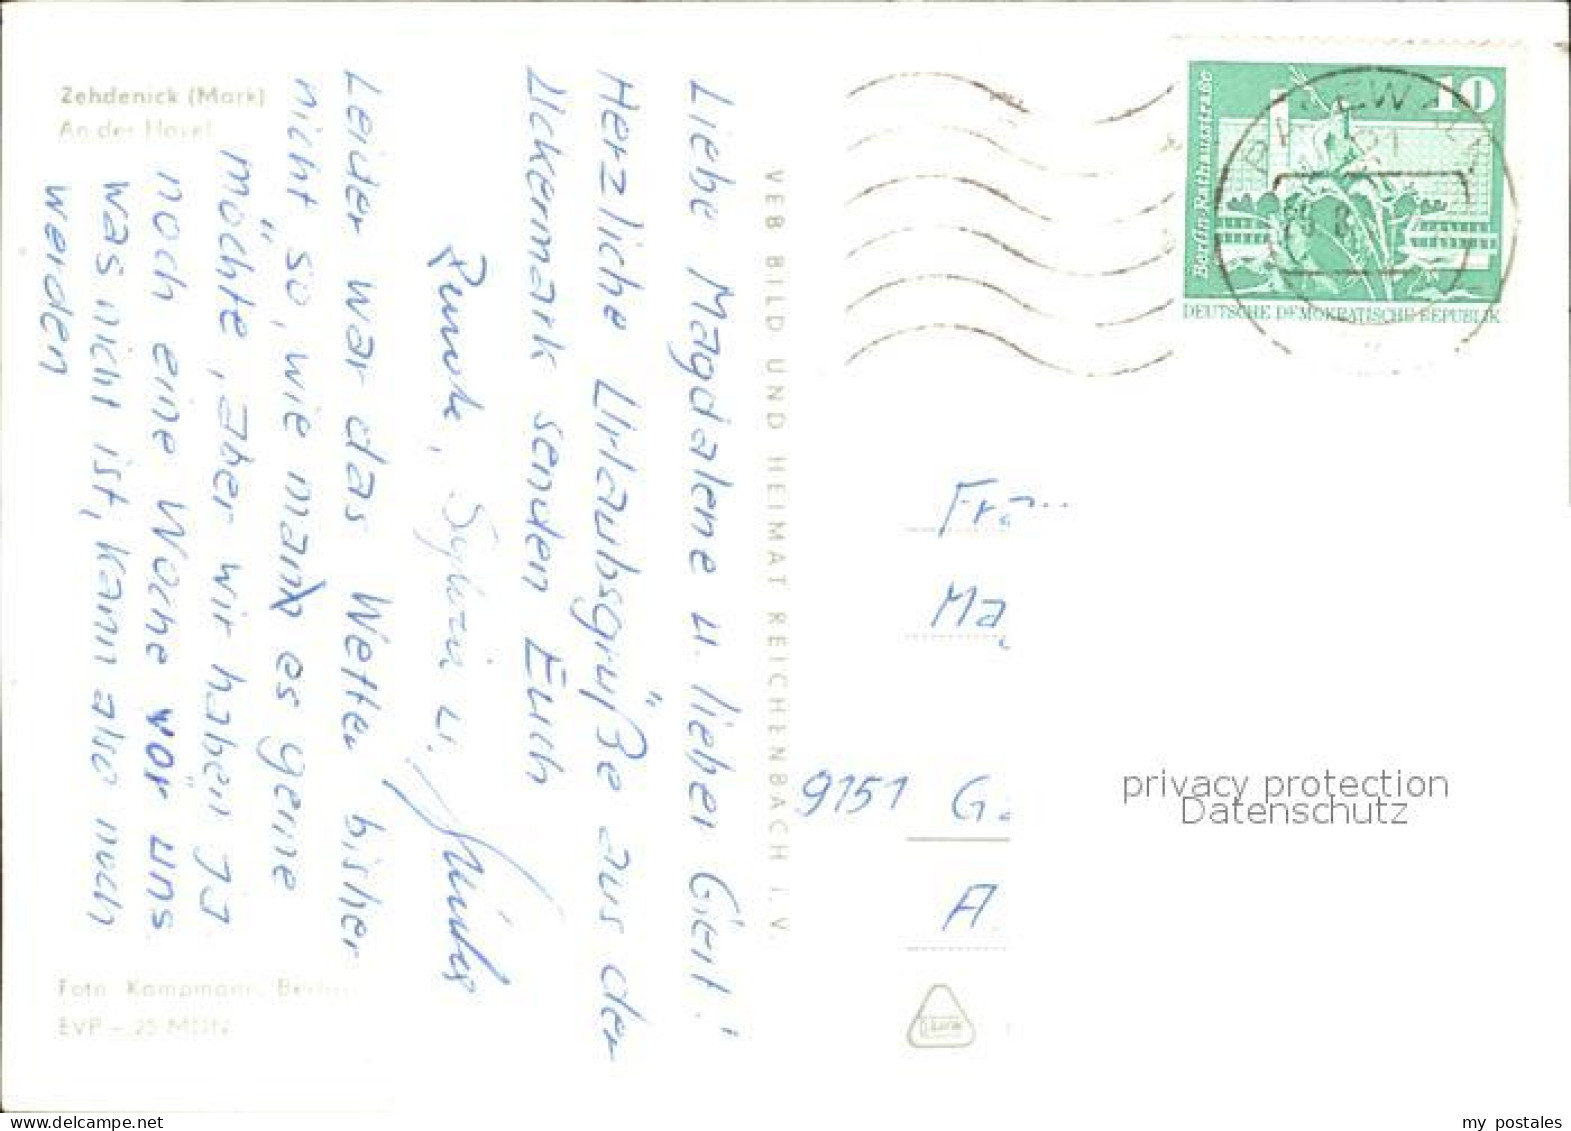 Zehdenick (Mark)
An der Havel
Liebe Magdalene u. lieber Gert!
Herzliche Urlaubsgrüße aus der
Uckermark senden Euch
u.
Leider war das Wetter bisher
nicht so, wie man es gerne
möchte, aber wir haben ja
noch eine Woche vor uns
was nicht ist, kann also noch
werden
Foto Kampmann, Berlin
EVP – 25 MDN
VEB BILD UND HEIMAT REICHENBACH I. V.
10
Berlin-Rathausstraße
DEUTSCHE DEMOKRATISCHE REPUBLIK
PASEWALK
Fra
Ma
9151 G
A
privacy protection
Datenschutz
my postales
delcampe.net